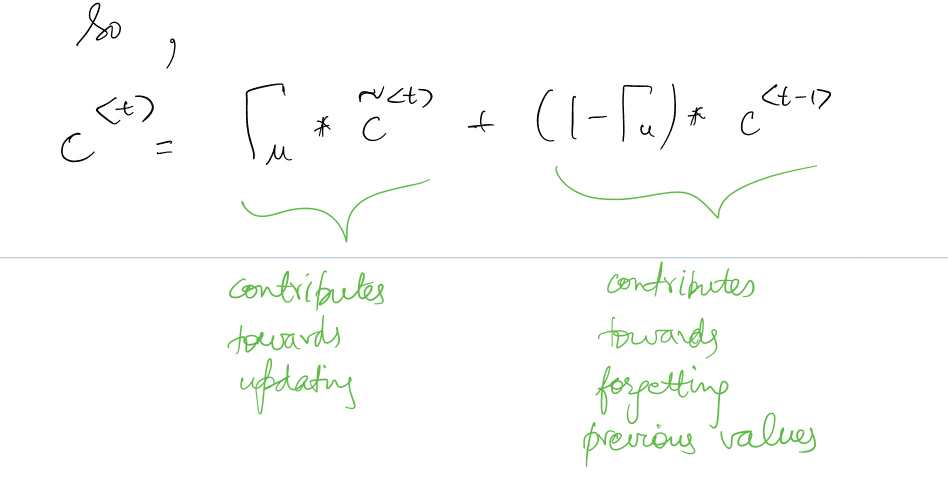 So,
c^{<t>} = Γ_u * c̃^{<t>} + (1 - Γ_u) * c^{<t-1>}
contributes towards updating
contributes towards forgetting previous values